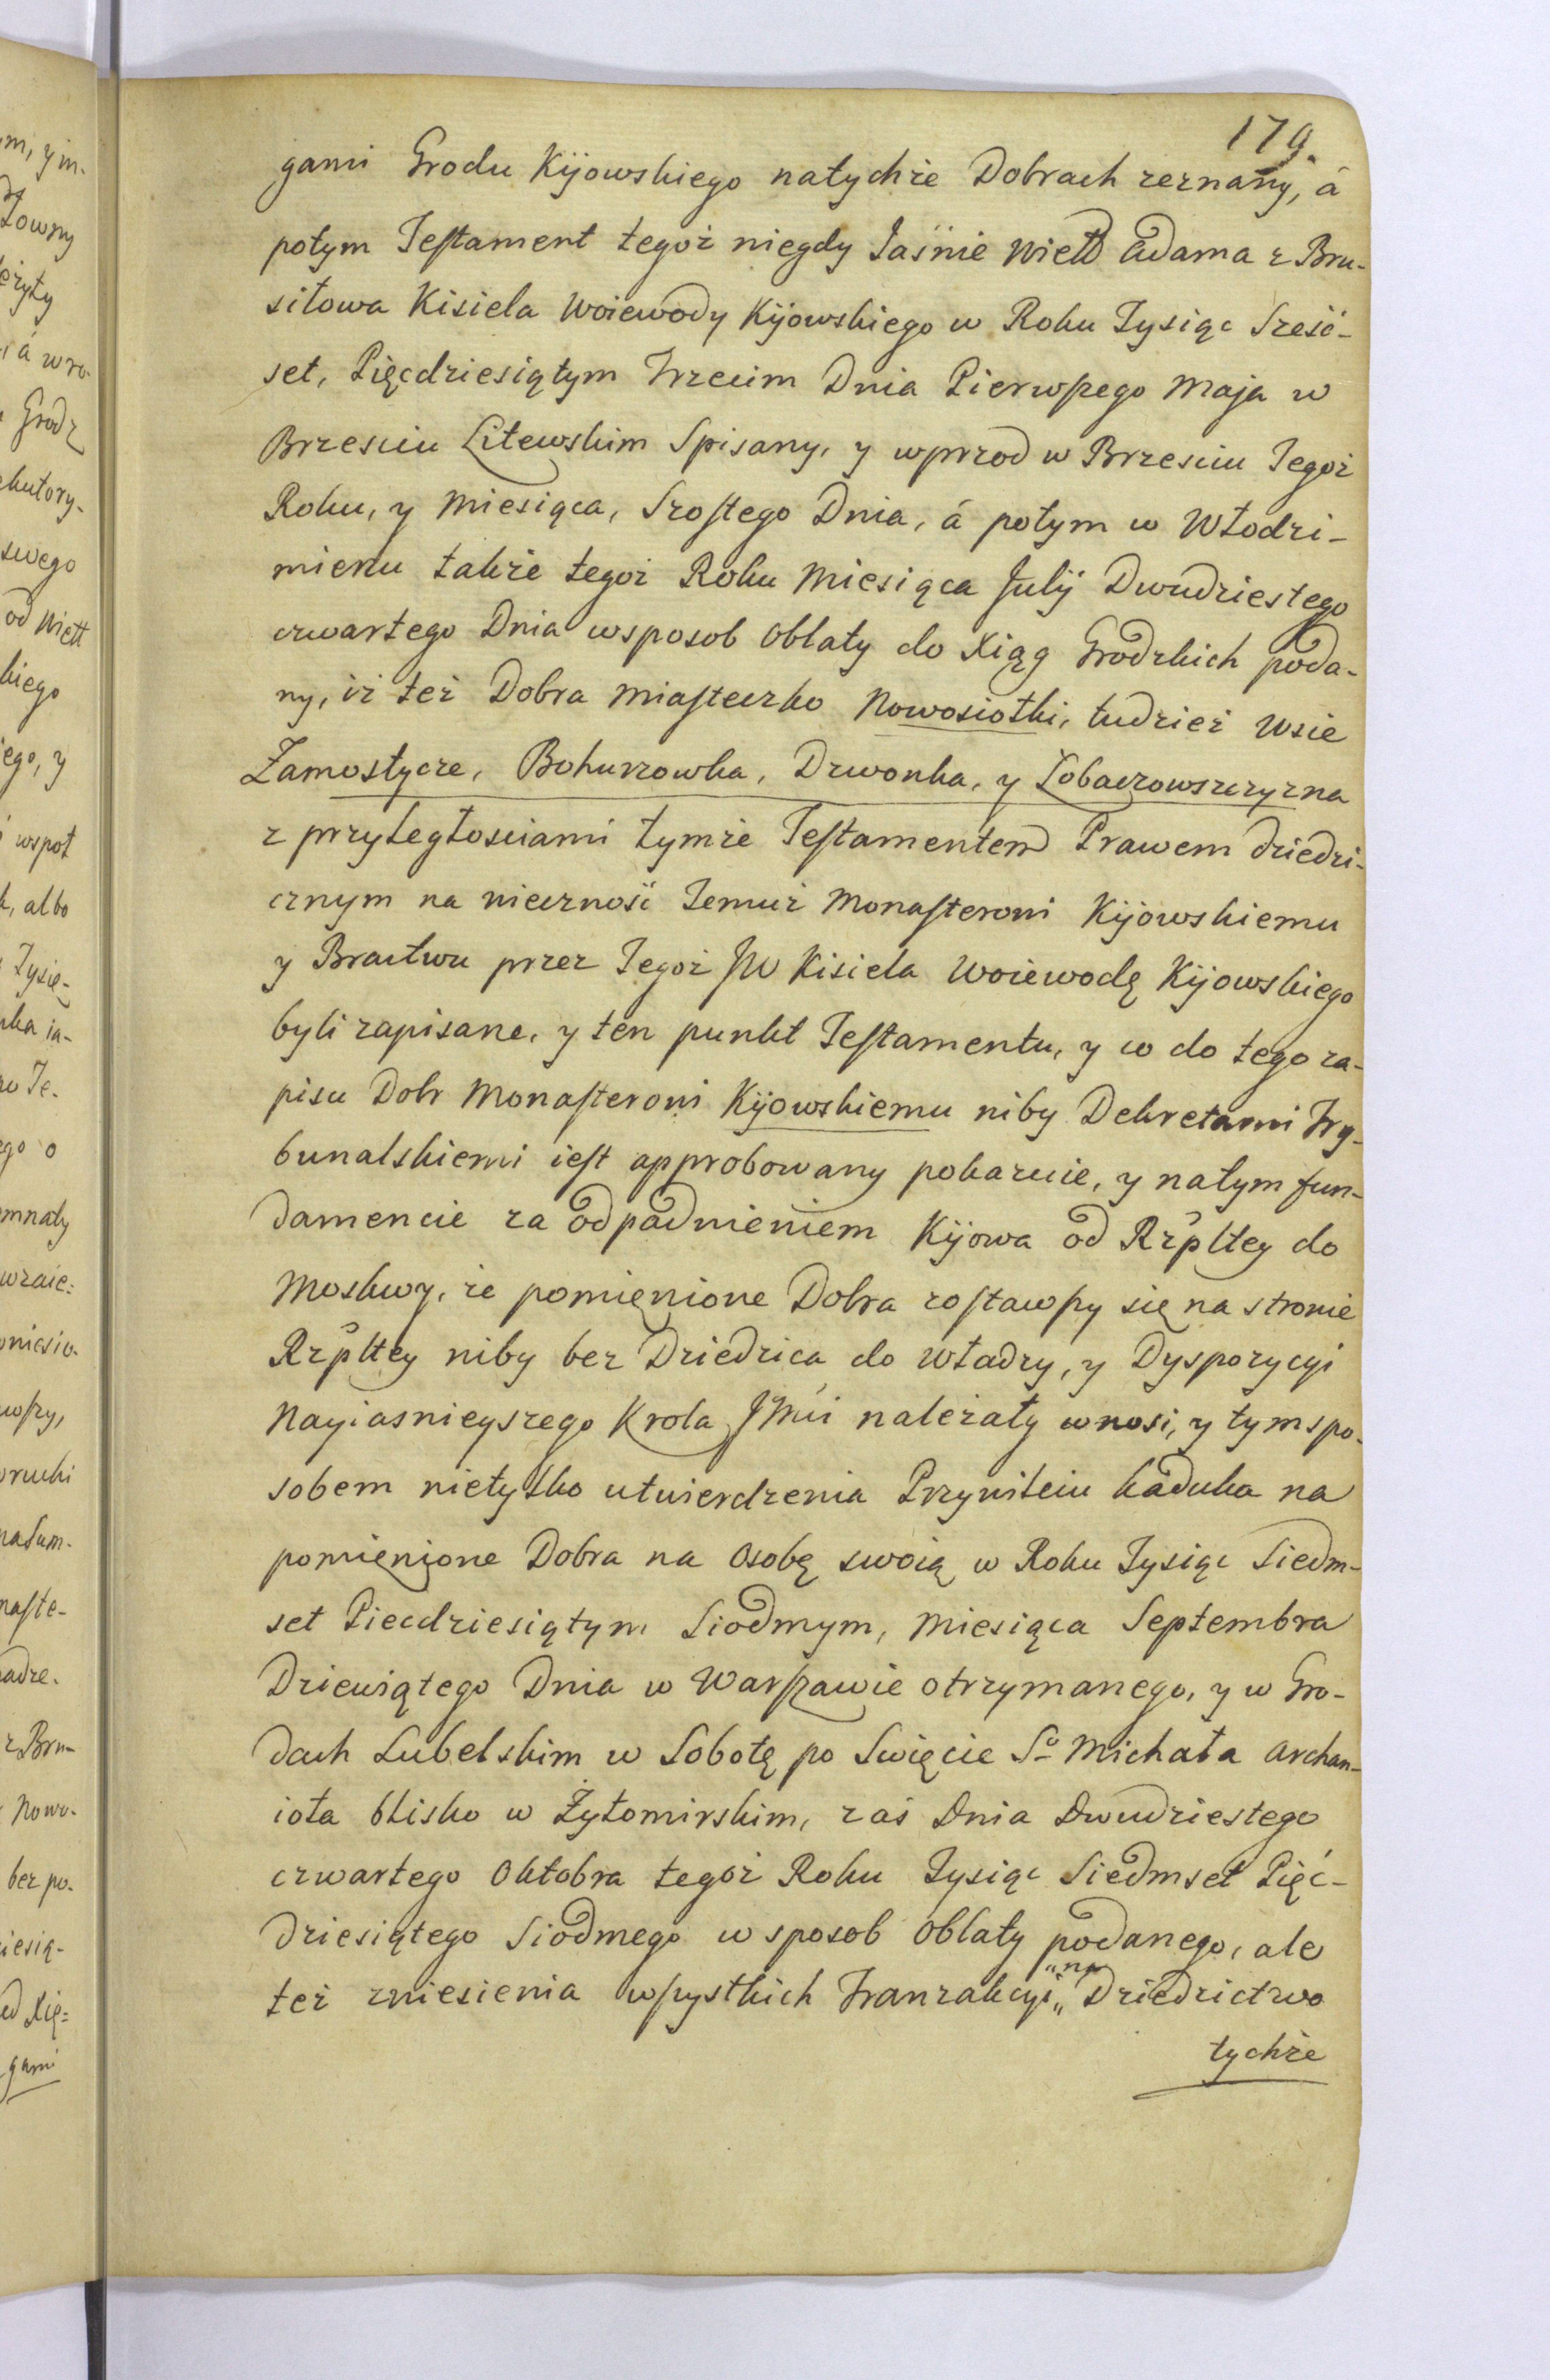 179.
gami Grodu Kijowskiego natychże Dobrach zeznany, á
potym Testament tegoż niegdy Jaśnie Wielł Adama z Bru-
siłowa Kisiela Woiewody Kijowskiego w Roku Tysiąc Sześć-
set, Pięcdziesiątym Trzecim Dnia Pierwszego Maja w
Brzesciu Litewskim Spisany, y wprzod w Brzesciu Tegoż
Roku, y Miesiąca, Szostego Dnia, á potym w Włodzi-
mierzu także tegoż Roku Miesiąca Julij Dwudziestego
czwartego Dnia wsposob Oblaty do Xiąg Grodzkich poda-
ny, iż też Dobra Miasteczko Nowosiołki, tudzież Wsie
Zamostycze, Bohurzowka, Dzwonka, y Łobaczowszczyzna
z przyległosciami tymże Testamentem Prawem dziedzi-
cznym na wieczność Temuż Monasterowi Kijowskiemu
y Bractwu przez Tegoż JW Kisiela Woiewodę Kijowskiego
byli zapisane, y ten punkt Testamentu, y co do tego za-
pisu Dobr Monasterowi Kijowskiemu niby Dekretami Try-
bunalskiemi iest approbowany pokazuie, y natym fun-
damencie za odpadnieniem Kijowa od Rzpltey do
Moskwy, że pomienione Dobra zostawszy się na stronie
Rzpltey niby bez Dziedzica do władzy, y Dyspozycyi
Nayiasnieyszego Krola JMci należały wnosi, y tym spo-
sobem nietylko utwierdzenia Przywileiu kaduka na
pomienione Dobra na Osobę swoią w Roku Tysiąc Siedm-
set Piecdziesiątym Siodmym, Miesiąca Septembra
Dziewiątego Dnia w Warszawie otrzymanego, y w Gro-
dach Lubelskim w Sobotę po Swięcie So Michała Archan-
ioła blisko w Żytomirskim, zaś Dnia Dwudziestego
czwartego Oktobra tegoż Roku Tysiąc Siedmset Pięć-
dziesiątego Siodmego w sposob Oblaty podanego, ale
też zniesienia wszystkich Tranzakcyi „na„ Dziedzictwo
tychże